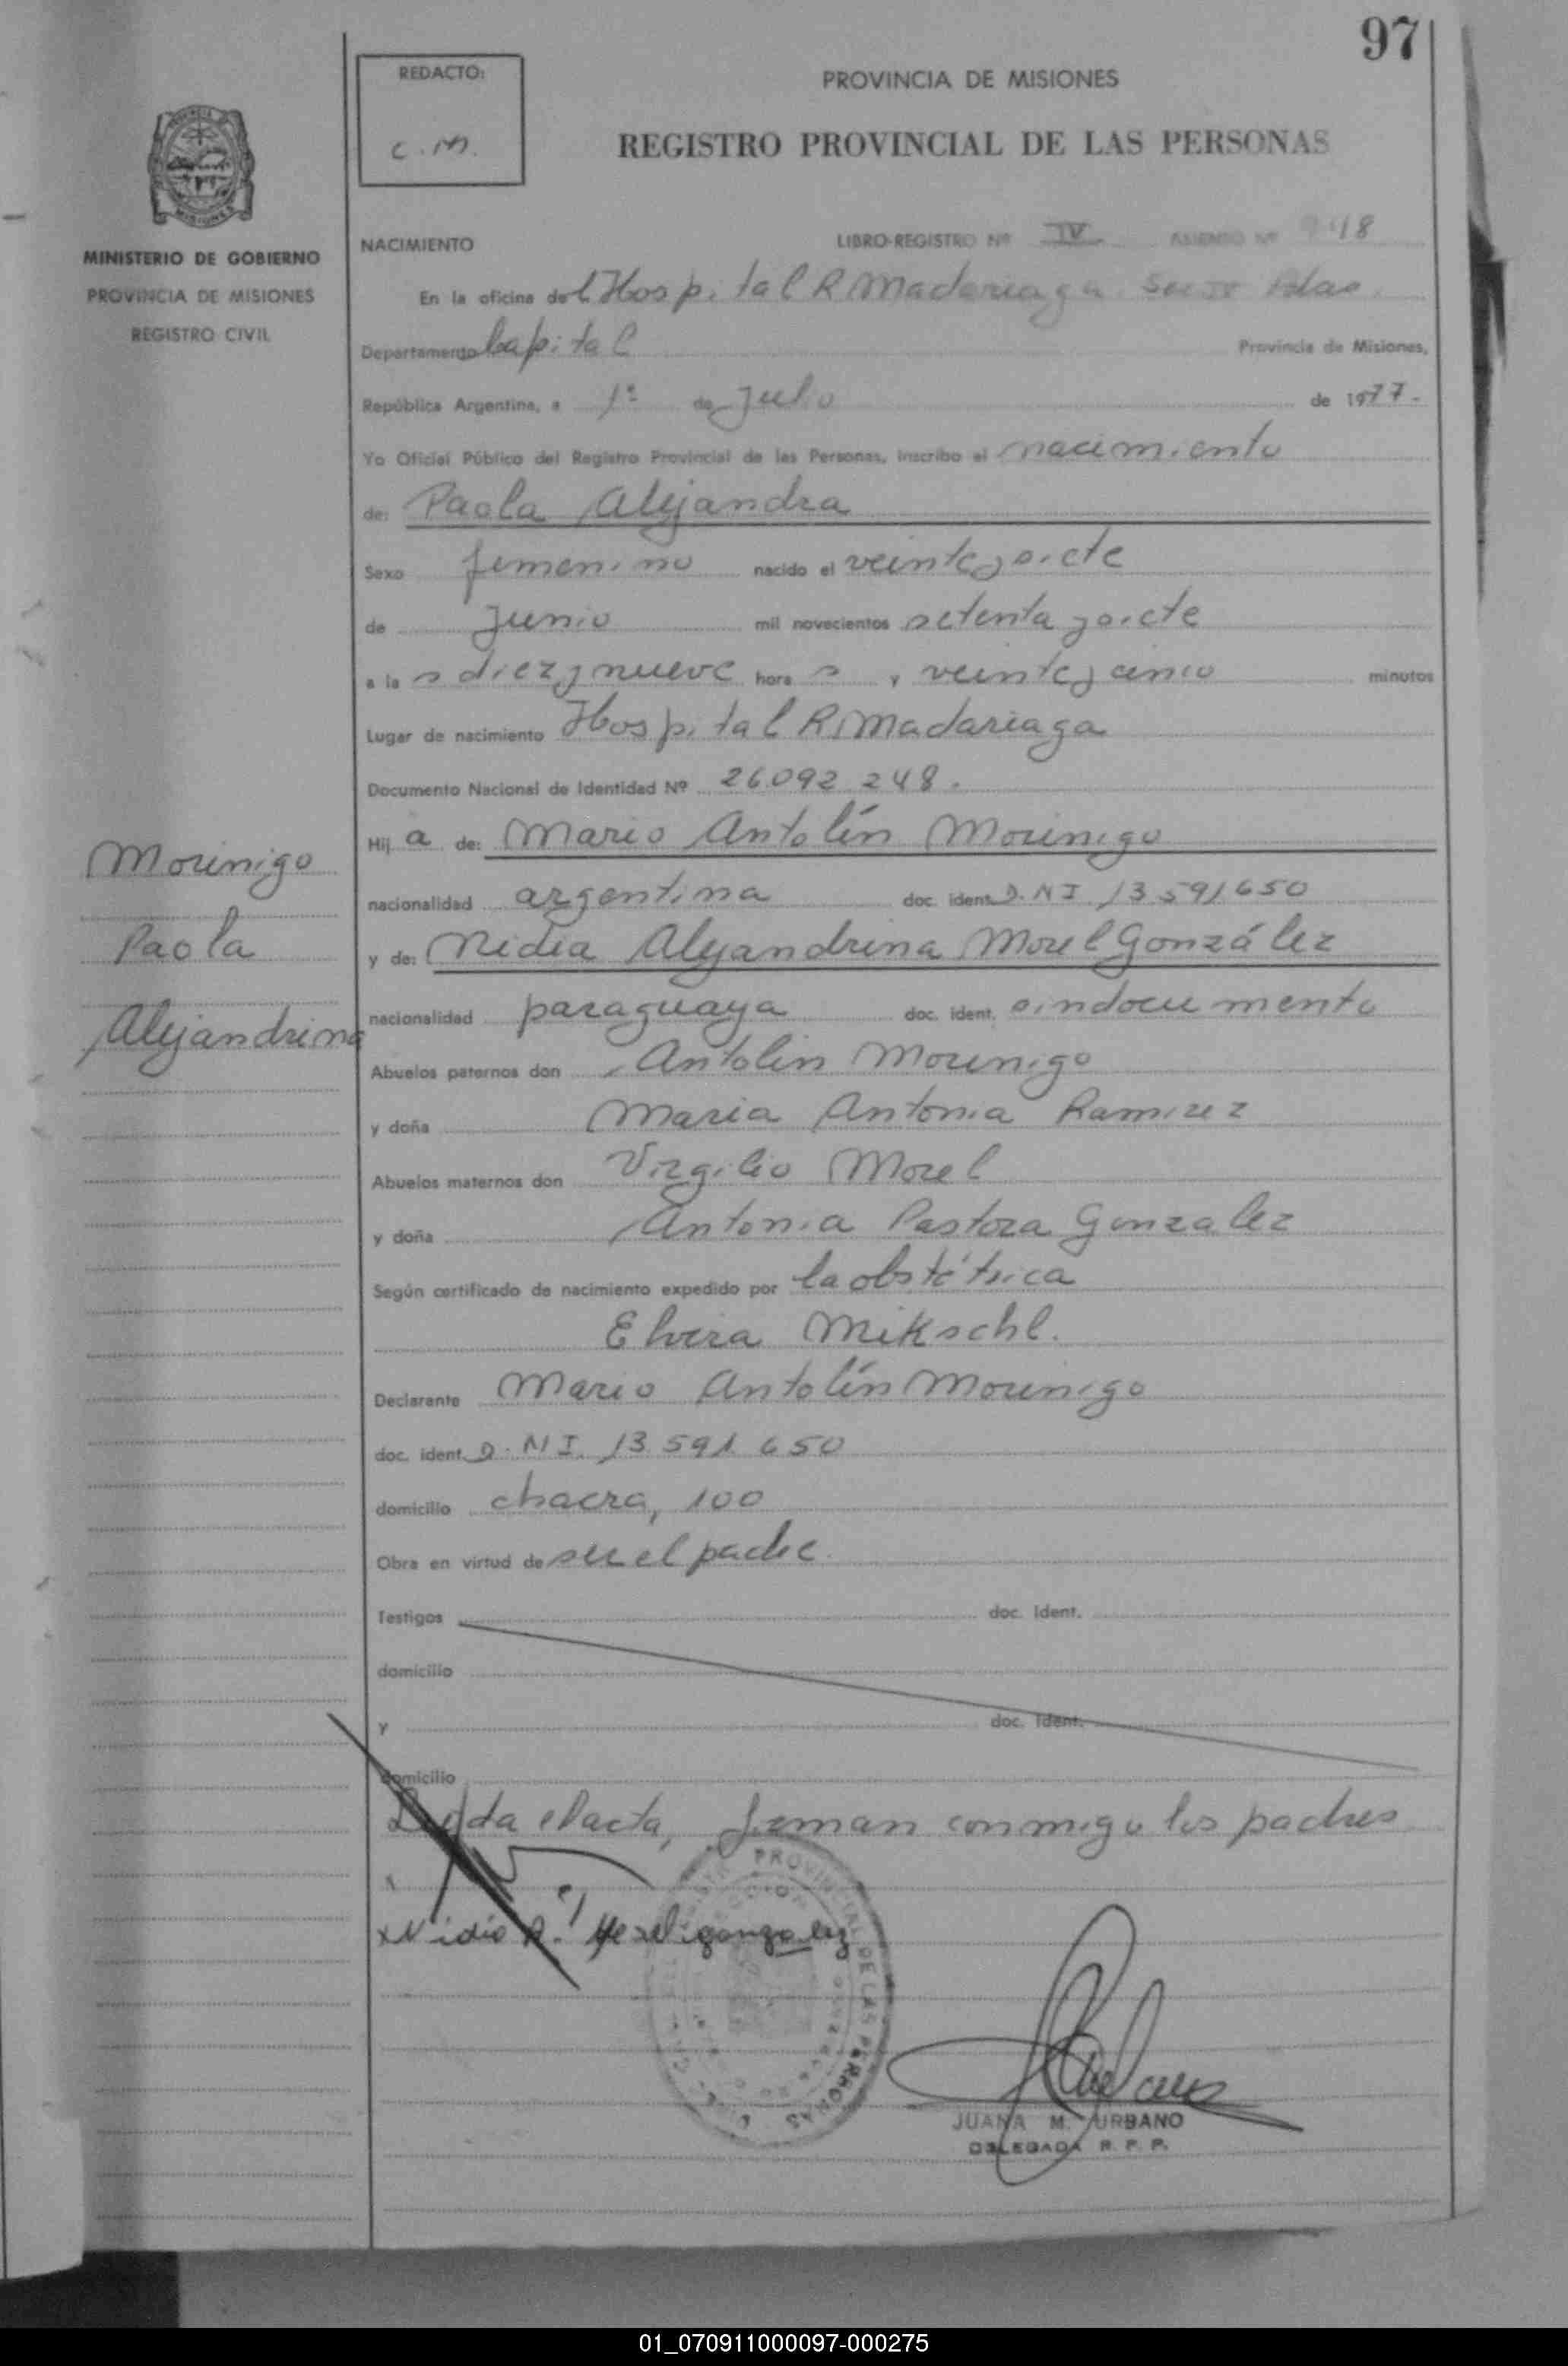 97
REDACTO:
C.M.
PROVINCIA DE MISIONES
REGISTRO PROVINCIAL DE LAS PERSONAS
MINISTERIO DE GOBIERNO
PROVINCIA DE MISIONES
REGISTRO CIVIL
NACIMIENTO LIBRO-REGISTRO Nº IV ASIENTO Nº
En la oficina del Hospital R Madariaga
Departamento Capital Provincia de Misiones,
República Argentina, a 1º de Julio de 1977.-
Yo Oficial Público del Registro Provincial de las Personas, inscribo el nacimiento
de: Paola Alejandra
Sexo femenino nacido el veintey siete
de Junio mil novecientos setenta y siete
a la s diez y nueve hora s y veinte y cinco minutos
Lugar de nacimiento Hospital R. Madariaga
Documento Nacional de Identidad Nº 26.092.248.
Hij a de: Mario Antolín Morinigo
nacionalidad argentina doc. ident. D.N.I. 13.591.650
y de: Nidia Alejandrina Morel González
nacionalidad paraguaya doc. ident. sindocumento
Abuelos paternos don Antolin Morinigo
y doña Maria Antonia Ramirez
Abuelos maternos don Virgilio Morel
y doña Antonia Pastora Gonzalez
Según certificado de nacimiento expedido por la obstétrica
Elvira Mikschl.
Declarante Mario Antolín Morinigo
doc. ident. D.N.I. 13.591.650
domicilio chacra, 100
Obra en virtud de ser el padre.
Testigos doc. Ident.
domicilio
y doc. Ident.
domicilio
Leída el acta, firman conmigo los padres
x Nidia A. Morel gonzalez
Morinigo
Paola
Alejandrina
PROVINCIAL DE LAS PERSONAS
JUANA M. URBANO
DELEGADA R. P. P.
01_070911000097-000275